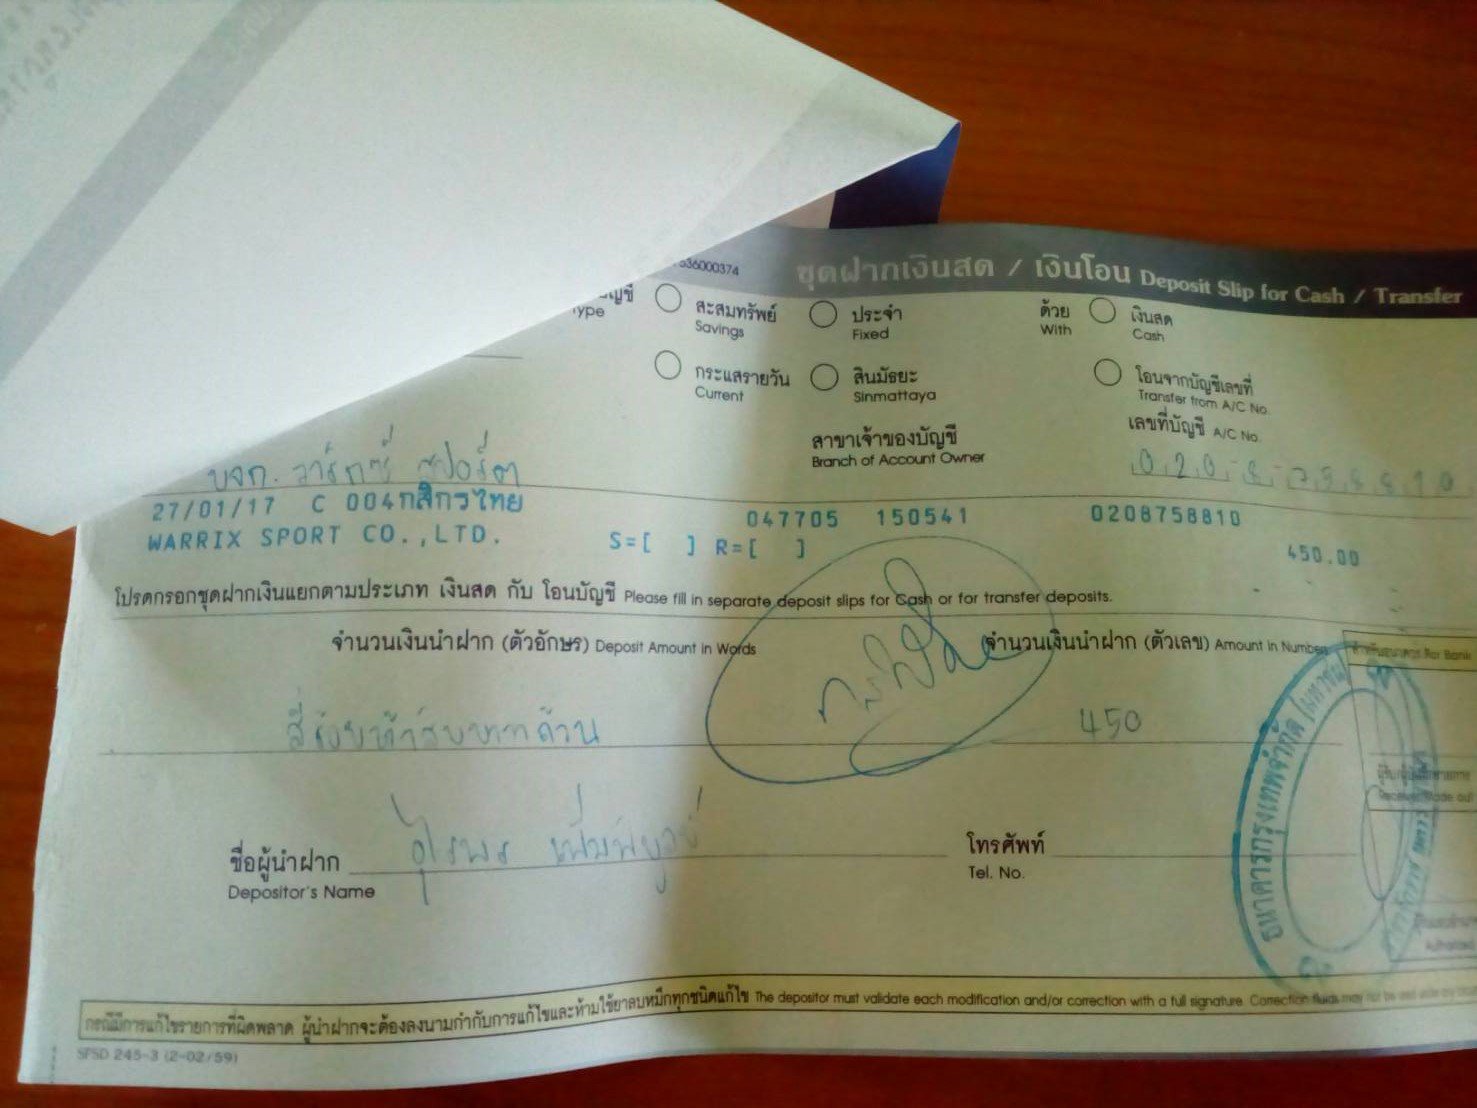 536000374 ชุดฝากเงินสด / เงินโอน Deposit Slip for Cash / Transfer
บัญชี สะสมทรัพย์ ประจำ ด้วย เงินสด
Type Savings Fixed With Cash
กระแสรายวัน สินมัธยะ โอนจากบัญชีเลขที่
Current Sinmattaya Transfer from A/C No.
สาขาเจ้าของบัญชี เลขที่บัญชี A/C No.
Branch of Account Owner
บจก. วาริกซ์ สปอร์ต
27/01/17 C 004กสิกรไทย 047705 150541 0208758810
WARRIX SPORT CO.,LTD. S=[ ] R=[ ] 450.00
โปรดกรอกชุดฝากเงินแยกตามประเภท เงินสด กับ โอนบัญชี Please fill in separate deposit slips for Cash or for transfer deposits.
จำนวนเงินนำฝาก (ตัวอักษร) Deposit Amount in Words จำนวนเงินนำฝาก (ตัวเลข) Amount in Number
สี่ร้อยห้าสิบบาทถ้วน 450
ชื่อผู้นำฝาก โทรศัพท์
Depositor's Name Tel. No.
ธนาคารกรุงเทพจำกัด (มหาชน)
กรณีมีการแก้ไขรายการที่ผิดพลาด ผู้นำฝากจะต้องลงนามกำกับการแก้ไขและห้ามใช้ยาลบหมึกทุกชนิดแก้ไข The depositor must validate each modification and/or correction with a full signature. Correction fluids may not be
SFSD 245-3 (2-02/59)